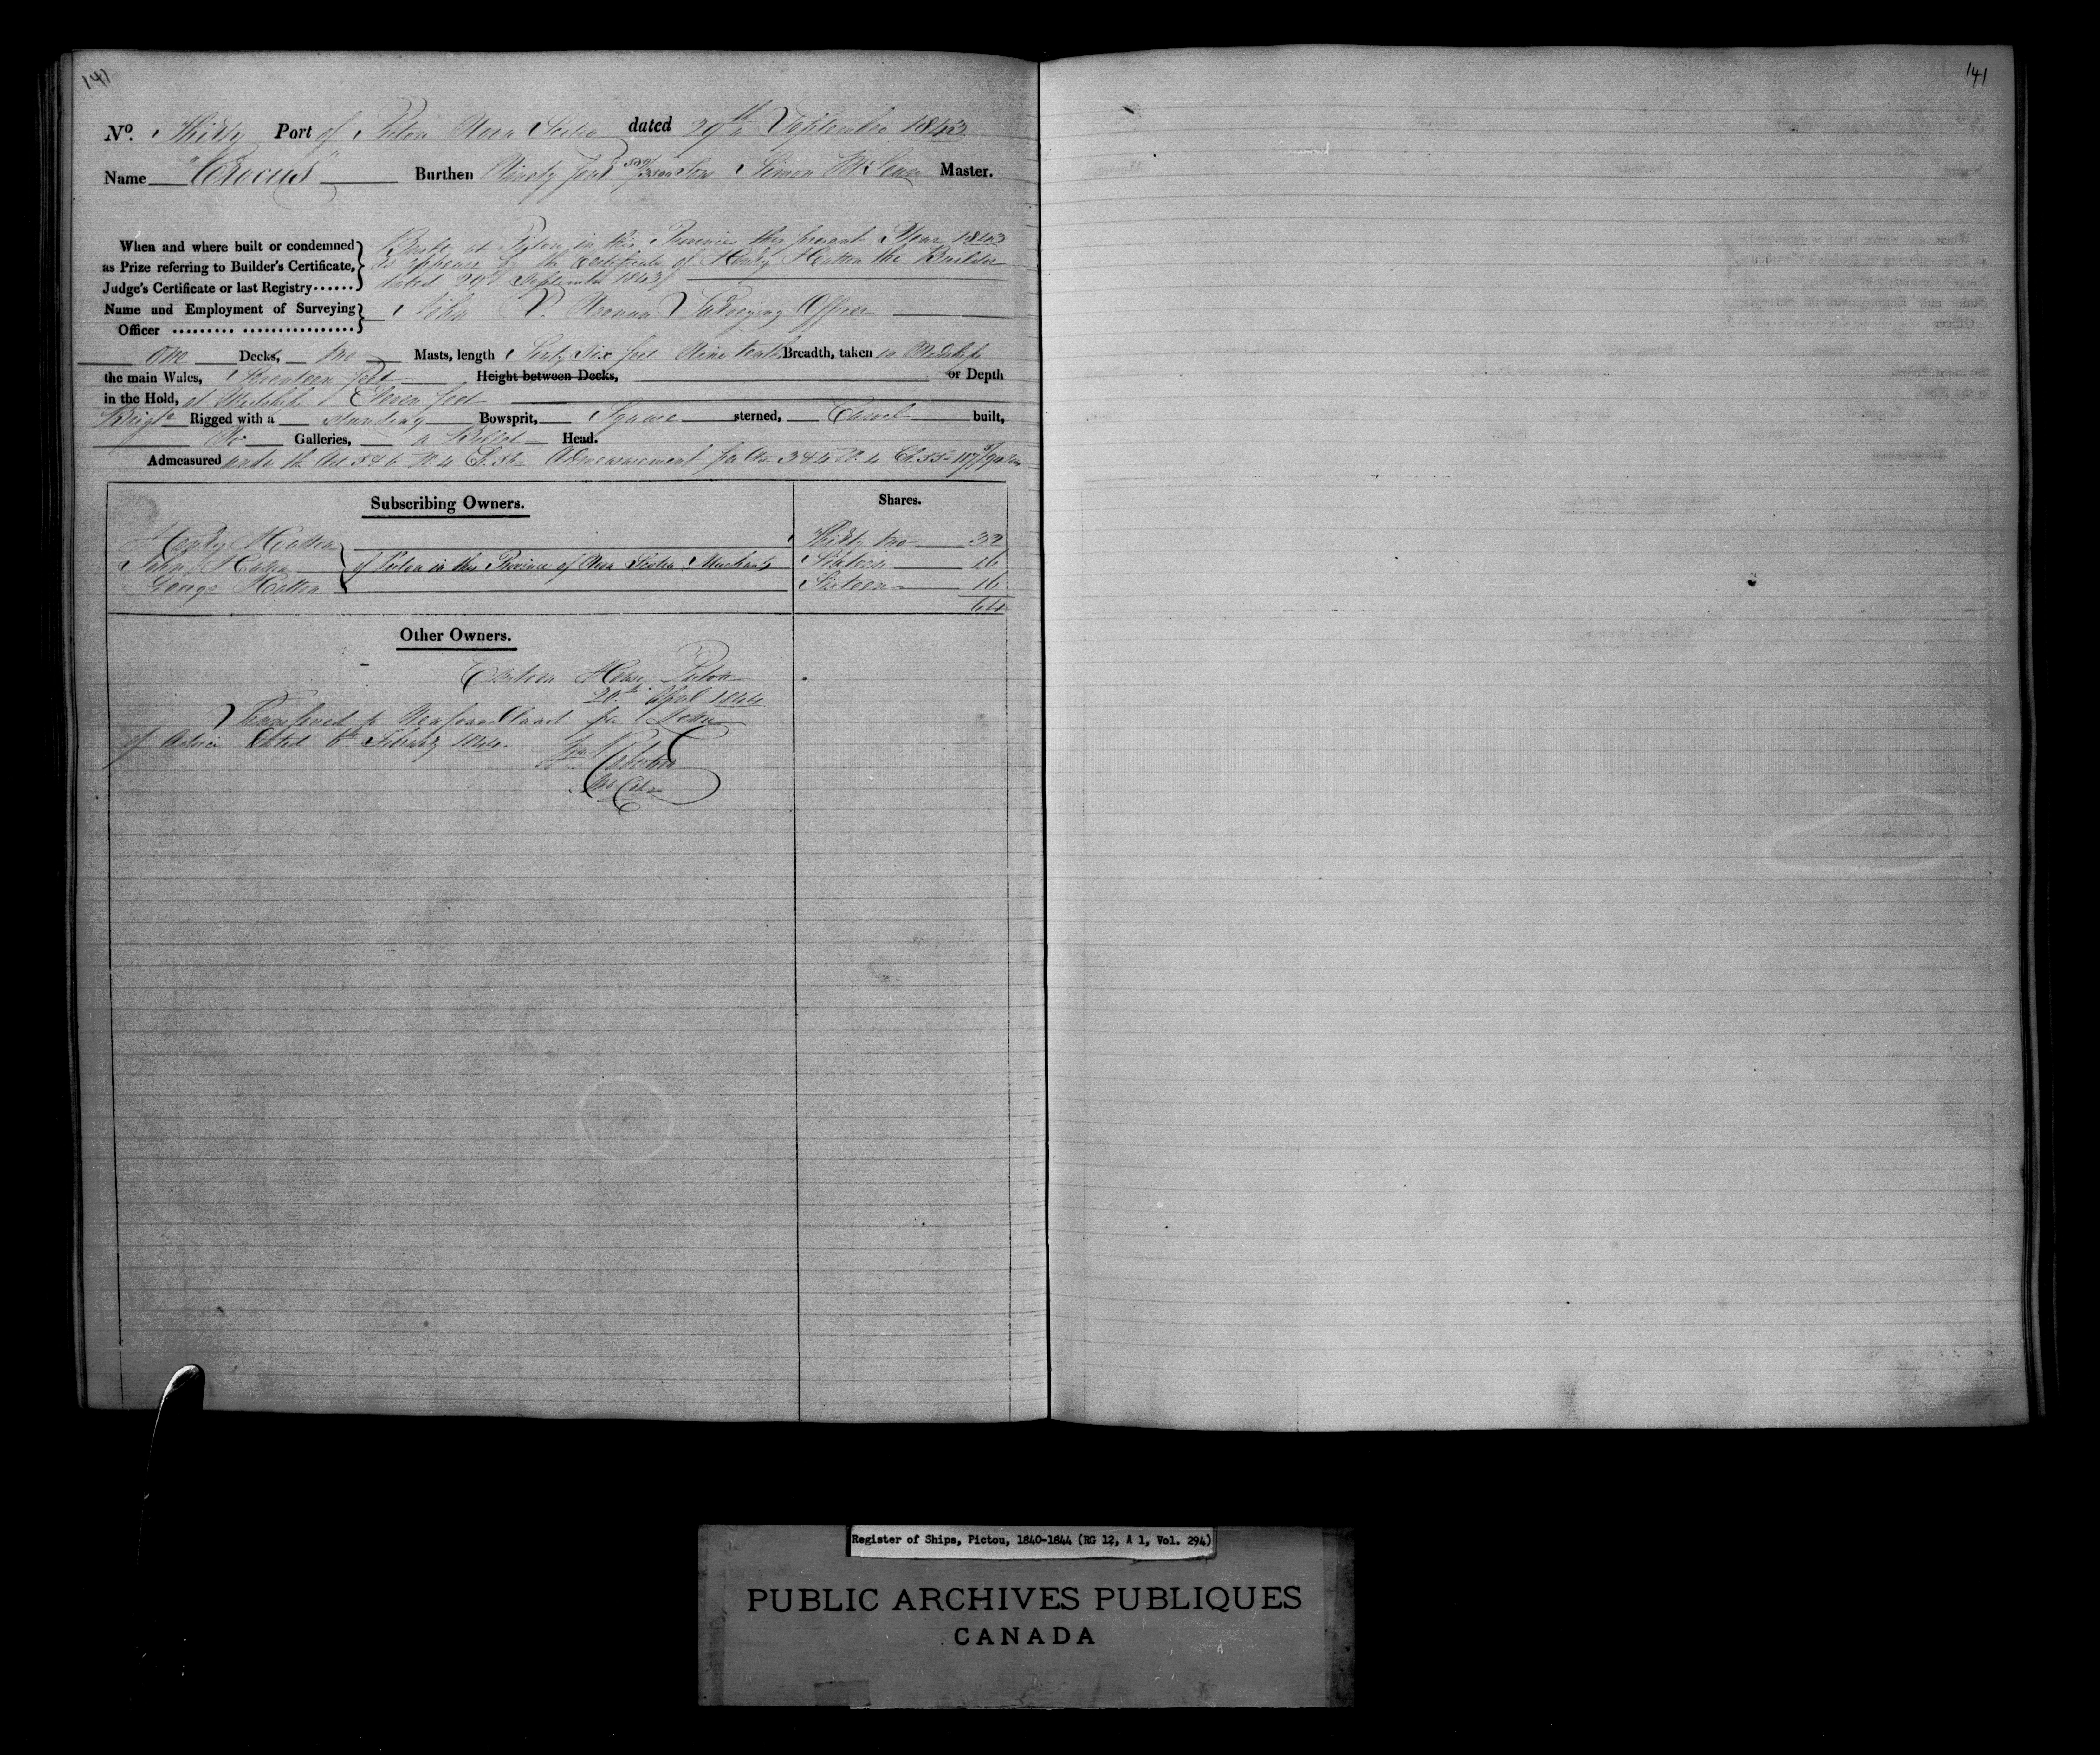 141
141
No. Thirty Port of Pictou Nova Scotia dated 29th September 1843
Name "Crocus" Burthen Ninety four 589/3500 Tons Simon McLean Master.
When and where built or condemned as Prize referring to Builder's Certificate, Judge's Certificate or last Registry......
Built at Pictou in this Province this present Year 1843
as appears by the Certificate of Henry Hatton the Builder
dated 29th September 1843
Name and Employment of Surveying Officer ......... ................ John D. Surveying Officer
One Decks, two Masts, length Sixty Six feet Nine tenths Breadth, taken in Midships
the main Wales, Seventeen feet Height between Decks, or Depth
in the Hold, at Midships Eleven feet
Brigte Rigged with a standing Bowsprit, Square sterned, Carvel built,
No Galleries, a Billet Head.
Admeasured under the Act 5 & 6 W. 4 Ch. 56 Admeasurement per Act 3 & 4 W. 4 Ch. 55
Subscribing Owners. Shares.
Henry Hatton Thirty two 32
John Hatton of Pictou in the Province of Nova Scotia Merchants Sixteen 16
George Hatton Sixteen 16
64
Other Owners.
Custom House Pictou
20th April 1844
Transferred to Newfoundland per Letter
of Advice dated 6th February 1844
Register of Ships, Pictou, 1840-1844 (RG 12, A 1, Vol. 294)
PUBLIC ARCHIVES PUBLIQUES
CANADA